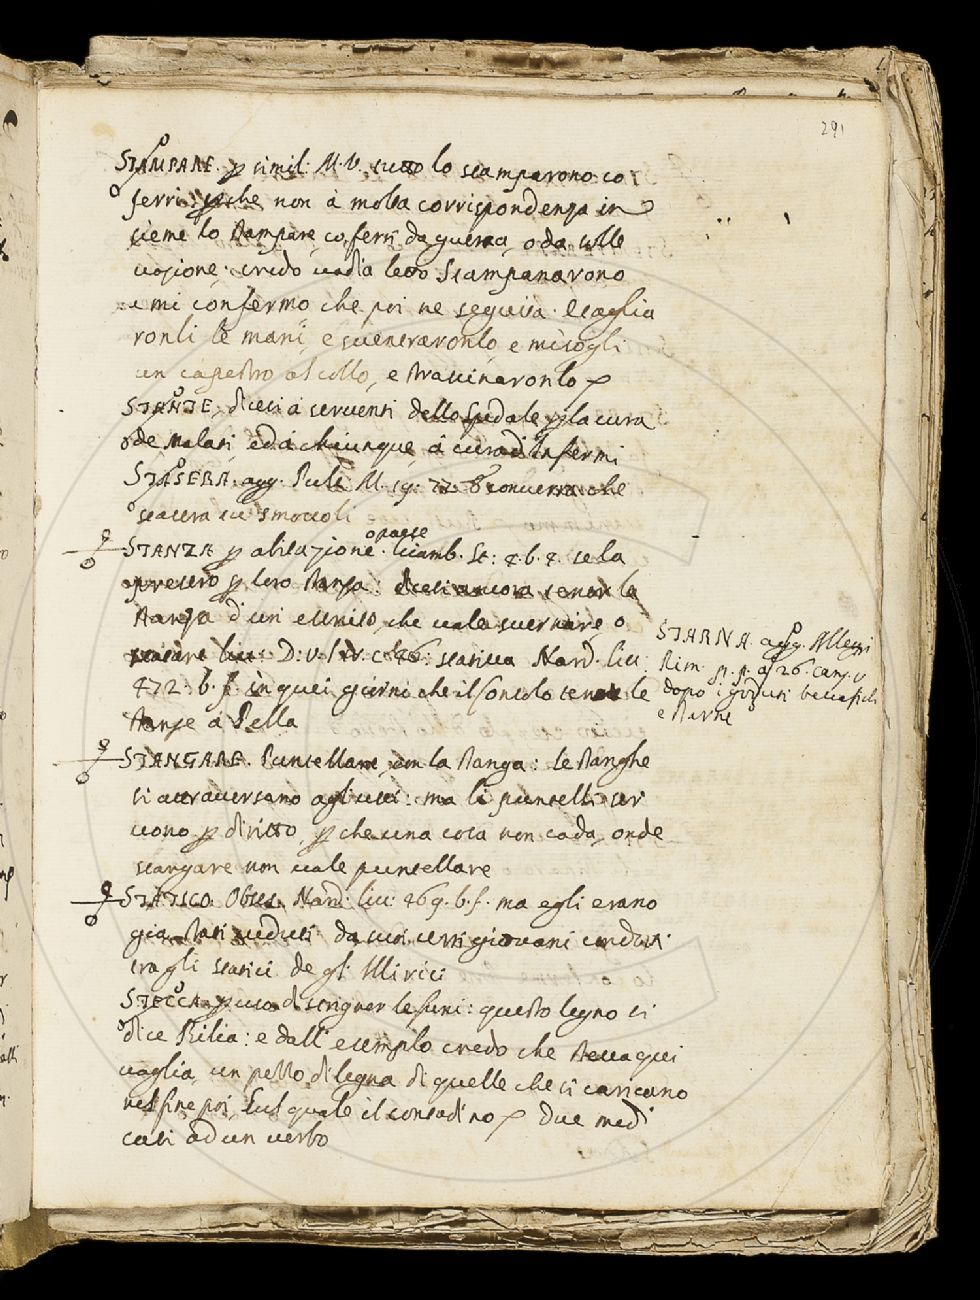 291
STAMPARE. ꝑ simil: M. V. tutto lo stamparono co
ferri: ꝑche non à molta corrispondenza in
sieme lo stampare, co, ferri da guerra, o da
credo vadia letto Stampanarono
e mi confermo che poi ne seguita. e taglia
ronli le mani, e sventraronlo, e misogli
un capestro al collo, e strascinaronlo
STANTE, dicesi a serventi dello spedale ꝑ la cura
de malati, ed a chiunque à cura d'Infermi
STASERA. agg. Pulci M.
stasera su smoccoli
STANZA ꝑ abitazione. o paese Giamb. St: 4. b. 4. se la
presero ꝑ loro stanza: dicesi ancora tener la
stanza d'un esercito, che vale svernare, o
Nard. liv:
472. b. f. in quei giorni che il Consolo tenne le
stanze à Pella
STARNA. agg. Allegri
Rim. p. p. a 26. Canz. V
dopo i beccafichi
e starne
STANGARE. Puntellare con la stanga: le stanghe
si attraversano agli usci: ma li puntelli ser
vono ꝑ diritto, ꝑ che una cosa non cada, onde
stangare non vale puntellare
STATICO. Obses. Nard: liv: 469. b. f. ma egli erano
gia stati veduti da suoi certi giovani condotti
tra gli statici de gl'Illirici
STECCA. ꝑ uso di strigner le funi: questo legno si
dice Bilia: e dall'esempio credo che stecca qui
vaglia, un pezzo di legna di quelle che si caricano
nel fine poi, Sul quale il contadino due med
cati ad un verbo